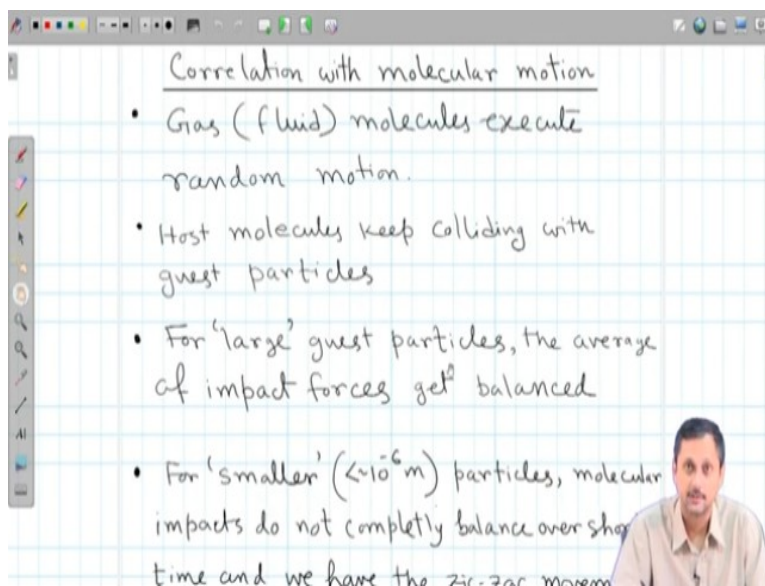 Correlation with molecular motion
• Gas (fluid) molecules execute
random motion.
• Host molecules keep colliding with
guest particles
• For 'large' guest particles, the average
of impact forces get balanced
• For 'smaller' (<~10⁻⁶m) particles, molecular
impacts do not completly balance over
time and we have the zic-zac
AI